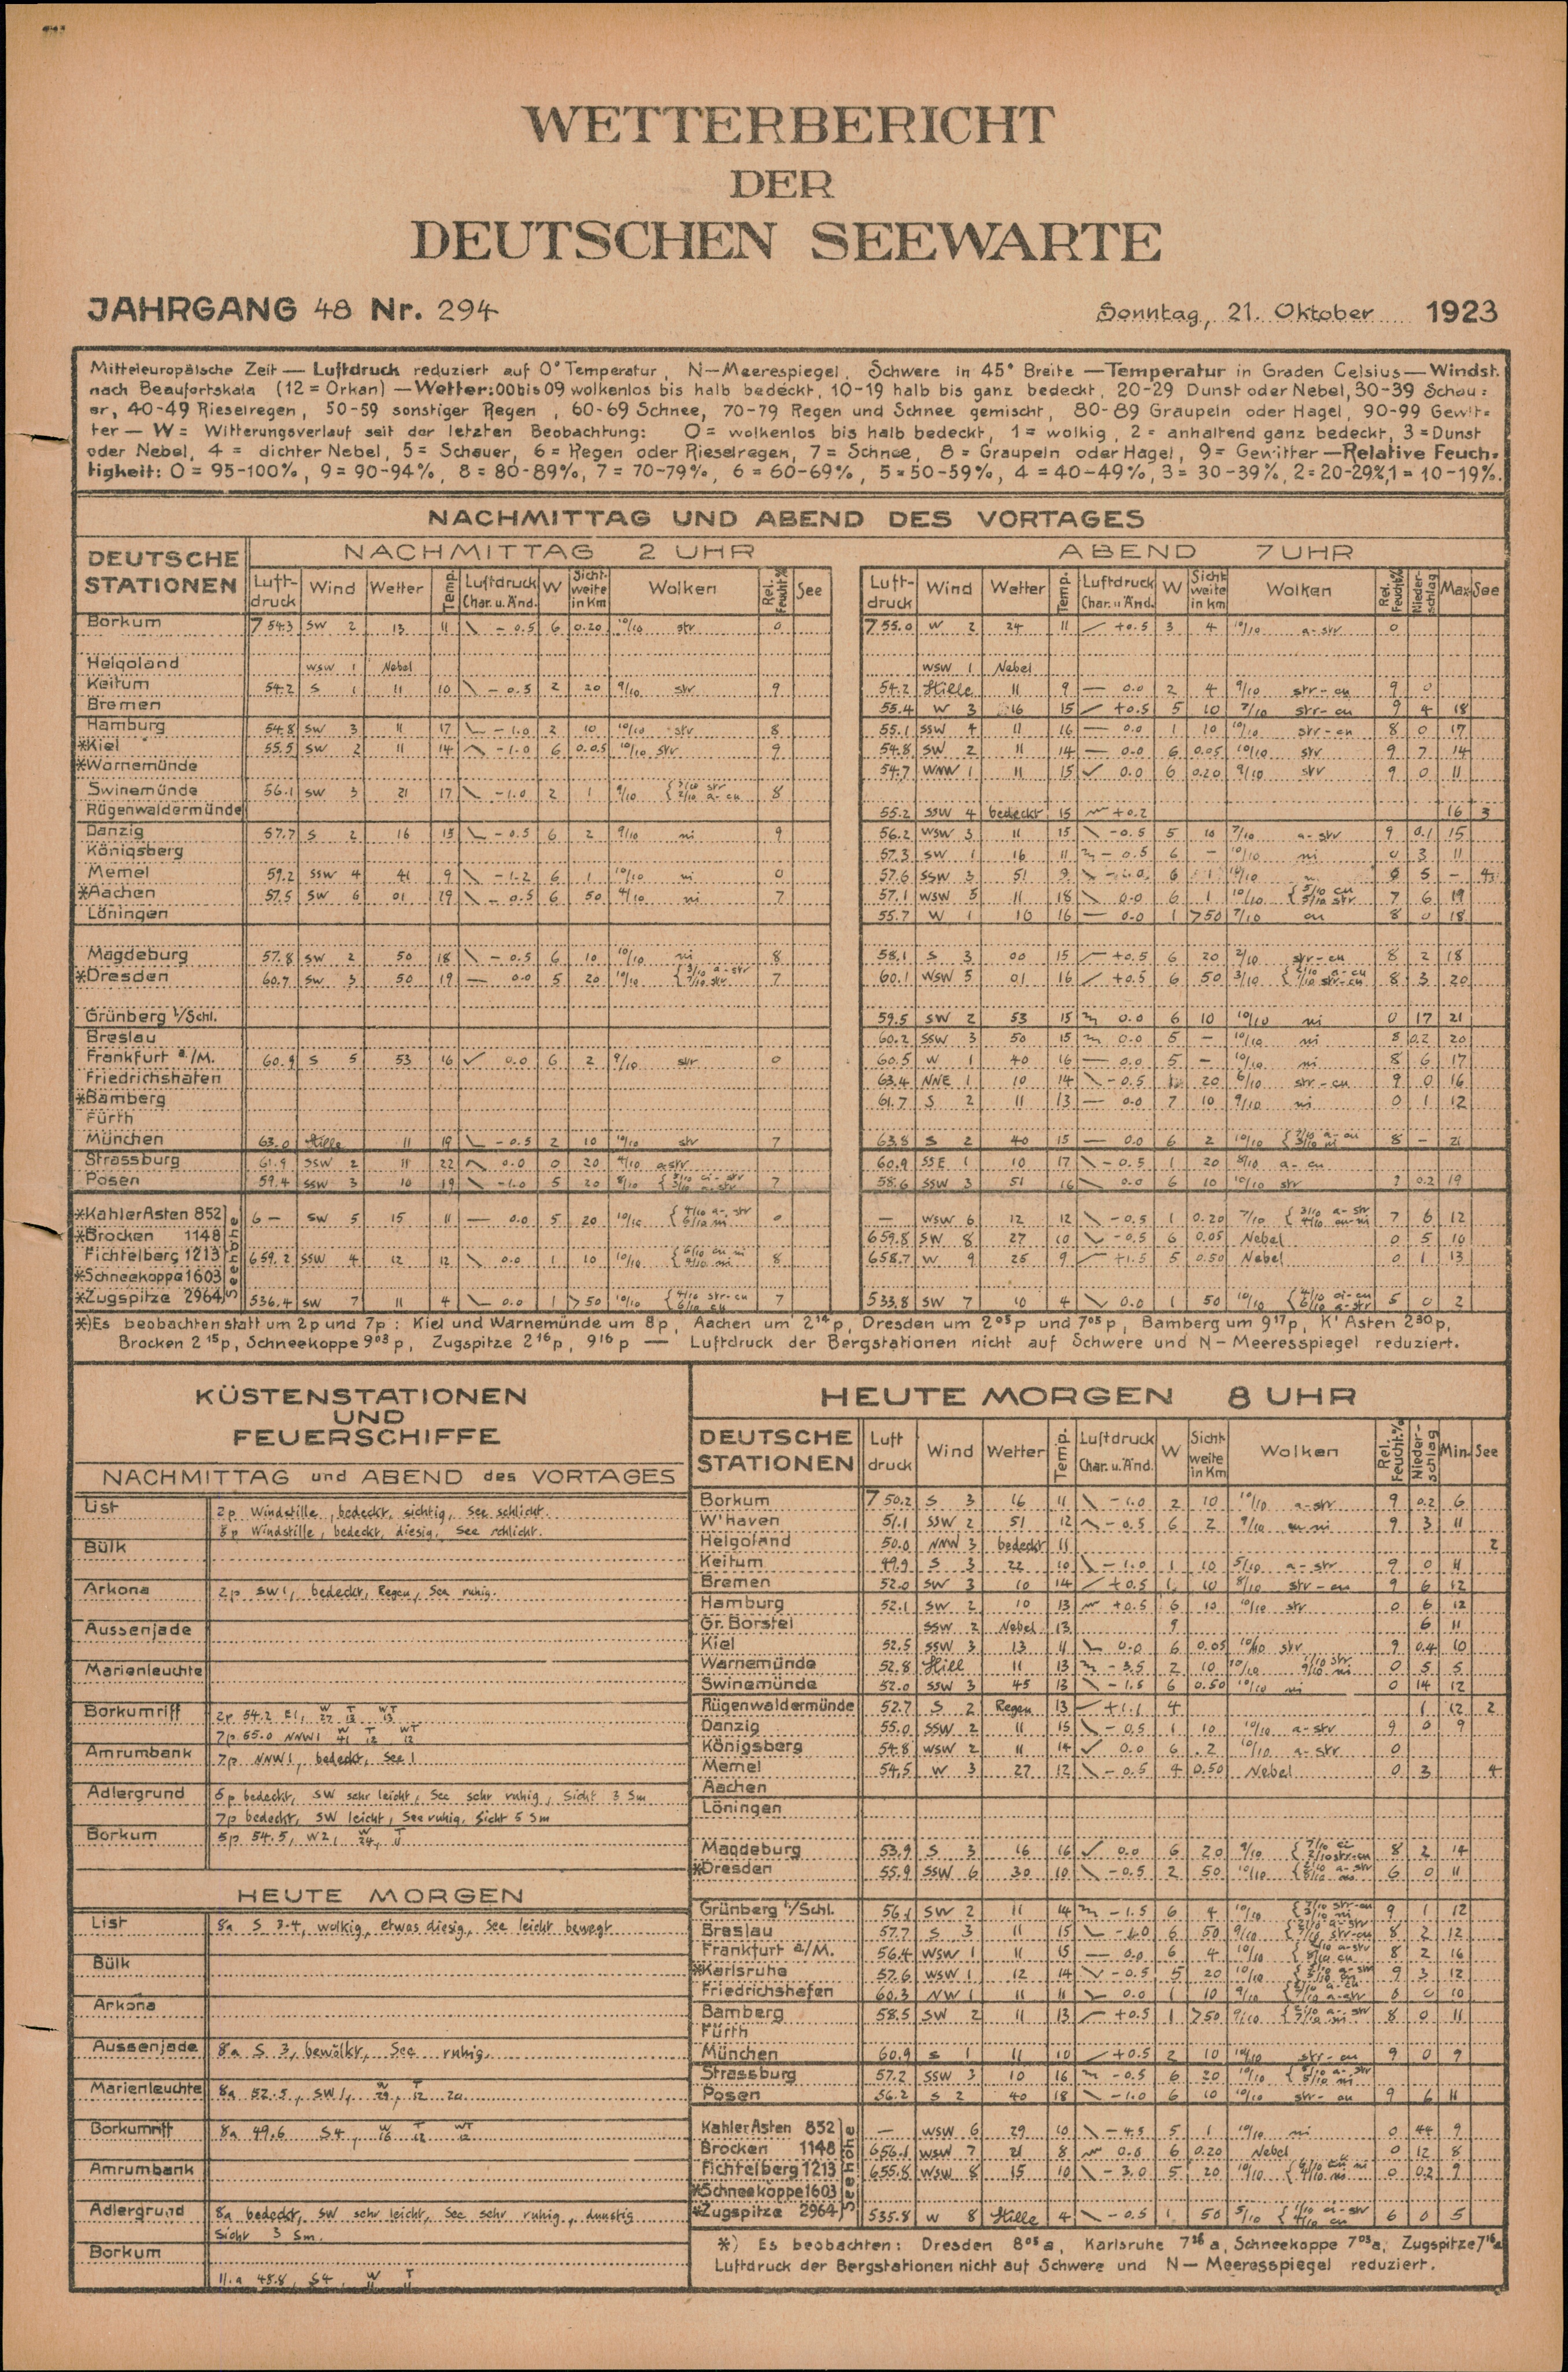 WETTERBERICHT
DER
DEUTSCHEN SEEWARTE
JAHRGANG 48 Nr. 294
Sonntag, 21. Oktober 1923
Mitteleuropäische Zeit — Luftdruck reduziert auf 0° Temperatur, N—Meerespiegel, Schwere in 45° Breite — Temperatur in Graden Celsius — Windst.
nach Beaufortskala (12 = Orkan) — Wetter: 00 bis 09 wolkenlos bis halb bedeckt, 10-19 halb bis ganz bedeckt, 20-29 Dunst oder Nebel, 30-39 Schau=
er, 40-49 Rieselregen, 50-59 sonstiger Regen, 60-69 Schnee, 70-79 Regen und Schnee gemischt, 80-89 Graupeln oder Hagel, 90-99 Gewit=
ter — W = Witterungsverlauf seit der letzten Beobachtung: 0 = wolkenlos bis halb bedeckt, 1 = wolkig, 2 = anhaltend ganz bedeckt, 3 = Dunst
oder Nebel, 4 = dichter Nebel, 5 = Schauer, 6 = Regen oder Rieselregen, 7 = Schnee, 8 = Graupeln oder Hagel, 9 = Gewitter — Relative Feuch=
tigkeit: 0 = 95-100%, 9 = 90-94%, 8 = 80-89%, 7 = 70-79%, 6 = 60-69%, 5 = 50-59%, 4 = 40-49%, 3 = 30-39%, 2 = 20-29%, 1 = 10-19%.
NACHMITTAG UND ABEND DES VORTAGES
DEUTSCHE STATIONEN
NACHMITTAG 2 UHR
ABEND 7 UHR
Luft-druck Wind Wetter Temp. Luftdruck Char. u. Änd. W Sicht-weite in Km Wolken Rel. Feucht.% See
Luft-druck Wind Wetter Temp. Luftdruck Char. u. Änd. W Sicht weite in km Wolken Rel. Feucht% Nieder-schlag Max See
Borkum 754.3 SW 2 13 11 - 0.5 6 0.20 10/10 str 0 755.0 W 2 24 11 +0.5 3 4 10/10 a-str 0
Helgoland WSW 1 Nebel WSW 1 Nebel
Keitum 54.2 S 1 11 10 - 0.5 2 20 9/10 str 9 54.2 Stille 11 9 0.0 2 4 9/10 str-cu 9 0
Bremen 55.4 W 3 16 15 +0.5 5 10 7/10 str-cu 9 4 18
Hamburg 54.8 SW 3 11 17 - 1.0 2 10 10/10 str 8 55.1 SSW 4 11 16 0.0 1 10 10/ str-cu 8 0 17
*Kiel 55.5 SW 2 11 14 -1.0 6 0.05 10/10 str 9 54.8 SW 2 11 14 0.0 6 0.05 10/10 str 9 7 14
*Warnemünde 54.7 WNW 1 11 15 0.0 6 0.20 9/10 str 9 0 11
Swinemünde 56.1 SW 3 21 17 -1.0 2 1 9/10 8
Rügenwaldermünde 55.2 SSW 4 bedeckt 15 +0.2 16 3
Danzig 57.7 S 2 16 15 -0.5 6 2 9/10 ni 9 56.2 WSW 3 11 15 -0.5 5 10 7/10 a-str 9 0.1 15
Königsberg 57.3 SW 1 16 11 - 0.5 6 - 10/10 ni 0 3 11
Memel 59.2 SSW 4 41 9 -1.2 6 1 10/10 ni 0 57.6 SSW 3 51 9 6 1 5 -
*Aachen 57.5 SW 6 01 19 - 0.5 6 50 4/10 ni 7 57.1 WSW 5 11 18 0.0 6 1 10/10 { 5/10 cu 5/10 str 7 6 19
Löningen 55.7 W 1 10 16 0.0 1 >50 7/10 cu 8 0 18
Magdeburg 57.8 SW 2 50 18 - 0.5 6 10 10/10 ni 8 58.1 S 3 00 15 +0.5 6 20 2/10 str-cu 8 2 18
*Dresden 60.7 SW 3 50 19 0.0 5 20 10/10 { 3/10 a-str 7/10 str 7 60.1 WSW 5 01 16 +0.5 6 50 3/10 8 3 20
Grünberg i/Schl. 59.5 SW 2 53 15 0.0 6 10 10/10 ni 0 17 21
Breslau 60.2 SSW 3 50 15 0.0 5 - 10/10 ni 8 0.2 20
Frankfurt a/M. 60.9 S 5 53 16 0.0 6 2 9/10 str 0 60.5 W 1 40 16 0.0 5 - 10/10 ni 8 6 17
Friedrichshafen 63.4 NNE 1 10 14 - 0.5 20 6/10 str-cu 9 0 16
*Bamberg 61.7 S 2 11 13 0.0 7 10 9/10 ni 0 1 12
Fürth
München 63.0 Stille 11 19 - 0.5 2 10 10/10 str 7 63.8 S 2 40 15 0.0 6 2 10/10 8 - 21
Strassburg 61.9 SSW 2 11 22 0.0 0 20 4/10 a-str 60.9 SSE 1 10 17 - 0.5 1 20 8/10 a-cu
Posen 59.4 SSW 3 10 19 -1.0 5 20 8/10 7 58.6 SSW 3 51 16 0.0 6 10 10/10 str 0.2 19
Seehöhe
*Kahler Asten 852 6 - SW 5 15 11 0.0 5 20 10/10 — WSW 6 12 12 - 0.5 1 0.20 7/10 7 6 12
*Brocken 1148 659.8 SW 8 27 10 - 0.5 6 0.05 Nebel 0 5 10
Fichtelberg 1213 659.2 SSW 4 12 12 0.0 1 10 10/10 8 658.7 W 9 25 9 +1.5 5 0.50 Nebel 0 1 13
*Schneekoppe 1603
*Zugspitze 2964 536.4 SW 7 11 4 0.0 1 >50 10/10 { 4/10 str-cu 6/10 cu 7 533.8 SW 7 10 4 0.0 1 50 10/10 5 0 2
*) Es beobachten statt um 2p und 7p: Kiel und Warnemünde um 8p, Aachen um 2 14 p, Dresden um 2 05 p und 7 05 p, Bamberg um 9 17 p, K' Asten 2 30 p,
Brocken 2 15 p, Schneekoppe 9 08 p, Zugspitze 2 16 p, 9 16 p — Luftdruck der Bergstationen nicht auf Schwere und N—Meeresspiegel reduziert.
KÜSTENSTATIONEN
UND
FEUERSCHIFFE
NACHMITTAG und ABEND des VORTAGES
List 2p Windstille, bedeckt, sichtig, See schlicht.
8p Windstille, bedeckt, diesig, See schlicht.
Bülk
Arkona 2p SW 1, bedeckt, Regen, See ruhig.
Aussenjade
Marienleuchte
Borkumriff 2p 54.2 E1, W 27 T 12 WT 13
7p 55.0 NNW 1 W 41 T 12 WT 12
Amrumbank 7p NNW 1, bedeckt, See 1
Adlergrund 5p bedeckt, SW sehr leicht, See sehr ruhig, Sicht 3 Sm
7p bedeckt, SW leicht, See ruhig, Sicht 5 Sm
Borkum 5p 54.5, W2, W 24, T 11
HEUTE MORGEN
List 8a S 3-4, wolkig, etwas diesig, See leicht bewegt
Bülk
Arkona
Aussenjade 8a S 3, bewölkt, See ruhig.
Marienleuchte 8a 52.5, SW 1, W 29, T 12 20
Borkumriff 8a 49.6 S4, W 16 T 12 WT 12
Amrumbank
Adlergrund 8a bedeckt, SW sehr leicht, See sehr ruhig, dunstig
Sicht 3 Sm.
Borkum
11.a 48.8, S4, W 11 T 11
HEUTE MORGEN 8 UHR
DEUTSCHE STATIONEN Luft druck Wind Wetter Temp. Luftdruck Char. u. Änd. W Sicht weite in Km Wolken Rel. Feucht.% Nieder-schlag Min. See
Borkum 750.2 S 3 16 11 -1.0 2 10 10/10 a-str 9 0.2 6
W'haven 51.1 SSW 2 51 12 - 0.5 6 2 9/10 cu ni 9 3 11
Helgoland 50.0 NNW 3 bedeckt 11 2
Keitum 49.9 S 3 22 10 -1.0 1 10 5/10 a-str 9 0 11
Bremen 52.0 SW 3 10 14 +0.5 10 8/10 str-cu 9 6 12
Hamburg 52.1 SW 2 10 13 +0.5 6 10 10/10 str 0 6 12
Gr. Borstel SSW 2 Nebel 13 9 6 11
Kiel 52.5 SSW 3 13 11 0.0 6 0.05 10/10 str 9 0.4 10
Warnemünde 52.8 Still 11 13 - 3.5 2 10 10/10 0 5 5
Swinemünde 52.0 SSW 3 45 13 -1.5 6 0.50 10/10 ni 0 14 12
Rügenwaldermünde 52.7 S 2 Regen 13 +1.1 4 1 12 2
Danzig 55.0 SSW 2 11 15 - 0.5 1 10 10/10 a-str 9 0 9
Königsberg 54.8 WSW 2 11 14 0.0 6 .2 10/10 a-str 0
Memel 54.5 W 3 27 12 - 0.5 4 0.50 Nebel 0 3 4
Aachen
Löningen
Magdeburg 53.9 S 3 16 16 0.0 6 20 9/10 { 7/10 ci 2/10 str-cu 8 2 14
*Dresden 55.9 SSW 6 30 10 -0.5 2 50 10/10 6 0 11
Grünberg i/Schl. 56.1 SW 2 11 14 -1.5 6 4 10/10 9 1 12
Breslau 57.7 S 3 11 15 -1.0 6 50 9/10 8 2 12
Frankfurt a/M. 56.4 WSW 1 11 15 0.0 6 4 10/10 8 2 16
*Karlsruhe 57.6 WSW 1 12 14 - 0.5 5 20 10/10 9 3 12
Friedrichshafen 60.3 NW 1 11 11 0.0 1 10 9/10 8 0 10
Bamberg 58.5 SW 2 11 13 +0.5 1 >50 9/10 8 0 11
Fürth
München 60.9 S 1 11 10 +0.5 2 10 10/10 str-cu 9 0 9
Strassburg 57.2 SSW 3 10 16 -0.5 6 20 10/10
Posen 56.2 S 2 40 18 -1.0 6 10 10/10 str-cu 9 6 11
Seehöhe
Kahler Asten 852 — WSW 6 29 10 -4.5 5 1 10/10 ni 0 44 9
Brocken 1148 656.1 WSW 7 21 8 0.8 6 0.20 Nebel 0 12 8
Fichtelberg 1213 655.8 WSW 8 15 10 - 3.0 5 20 10/10 0 0.2 9
*Schneekoppe 1603
*Zugspitze 2964 535.8 W 8 Stille 4 - 0.5 1 50 5/10 6 0 5
*) Es beobachten: Dresden 8 05 a, Karlsruhe 7 36 a, Schneekoppe 7 03 a, Zugspitze 7 16 a
Luftdruck der Bergstationen nicht auf Schwere und N—Meeresspiegel reduziert.